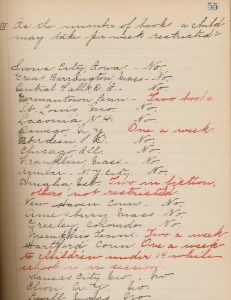 55
III Is the number of books a child
may take per week restricted?
Iowa City Iowa. - No
Great Barrington, Mass - No
Central Falls R. I. - No
Germantown Penn. - Two books
St. Louis - No
Laconia N.H. - No
N. Y. One a week
Aberdeen S. D. No
Chicago Ill. No
Franklin, Mass. No
N.Y. City No.
Omaha Neb. Two non fiction,
others not restricted
New Haven Conn. - No
Amesbury Mass No
Greeley Colorado No.
Memphis Tenn. Two a week
Hartford Conn One a week
to children under 14 while
school is in session
Kansas City Mo. No
N. Y. No.